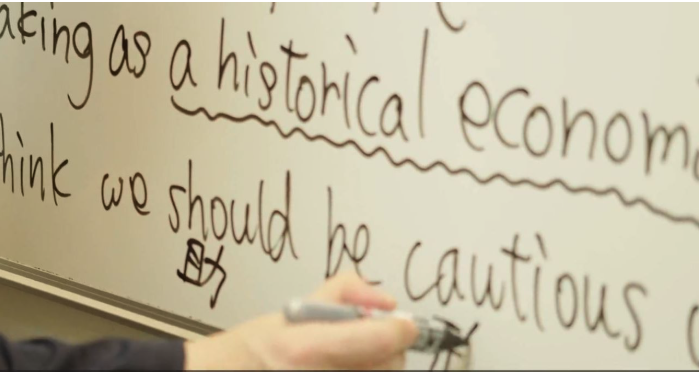 aking as a historical econom
hink we should be cautious
助